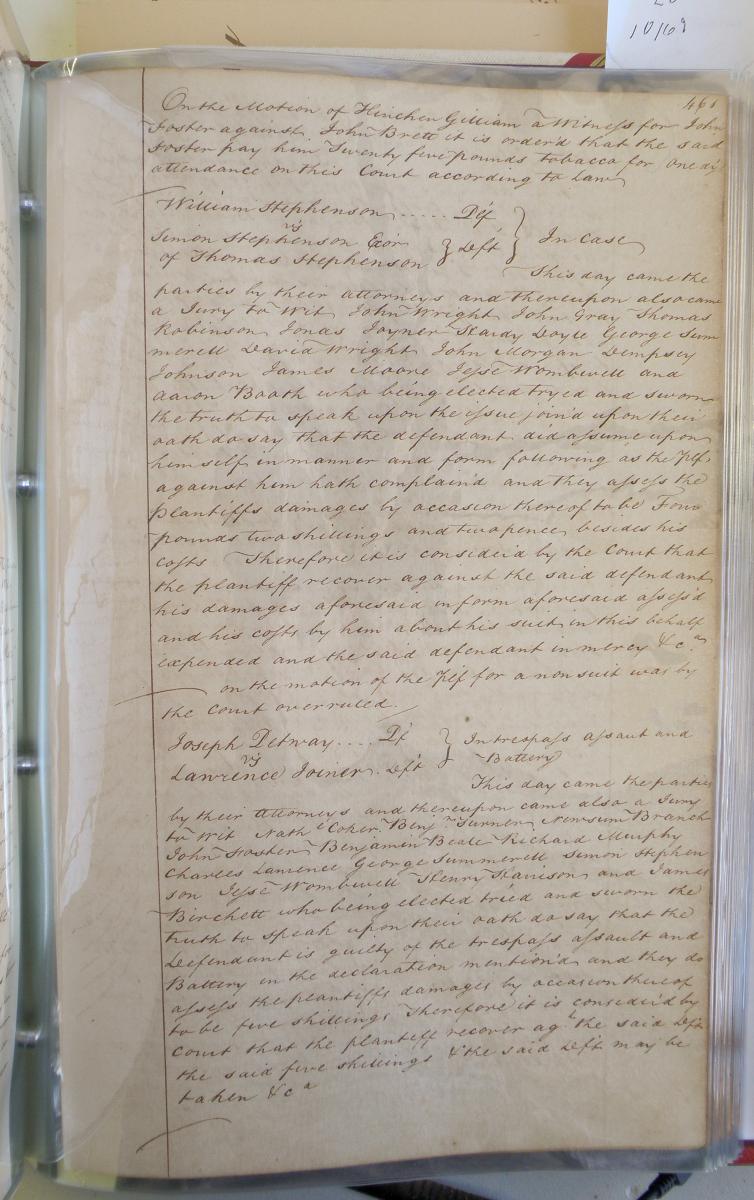 10/69
461
On the Motion of Hinchen Gilliam a Witness for John
Foster against John Brett it is order'd that the said
Foster pay him Twenty five pounds tobacco for one dʸ
attendance on this Court according to Law
William Stephenson ...... Plf
vs
Simon Stephenson Exor
of Thomas Stephenson } Deft } In Case
This day came the
parties by their attorneys and thereupon also came
a Jury to Wit John Wright John Gray Thomas
Robinson Jonas Joyner Hardy Doyle George Sum
merell David Wright John Morgan Dempsey
Johnson James Moore Jesse Wombwell and
Aaron Booth who being elected tryed and sworn
the truth to speak upon the issue join'd upon their
oath do say that the defendant did assume upon
himself in manner and form following as the Plf
against him hath complain'd and they assess the
plantiffs damages by occasion thereof to be Four
pounds two shillings and two pence besides his
costs Therefore it is consider'd by the Court that
the plantiff recover against the said defendant
his damages aforesaid in form aforesaid assess'd
and his costs by him about his suit in this behalf
expended and the said defendant in mercy &c.ª
on the motion of the Plf for a non suit was by
the Court overruled.
Joseph Detway .... Pf
vs
Lawrence Joiner. Deft } In trespass assaut and
Battery
This day came the parties
by their attorneys and thereupon came also a Jury
to Wit Nathˡ Coker Benjⁿ Turner Newsum Branch
John Foster Benjamin Beale Richard Murphy
Charles Lawrence George Summerell Simon Stephen
son Jesse Wombwell Henry Harrison and James
Birchett who being elected tried and sworn the
truth to speak upon their oath do say that the
Defendant is guilty of the trespass assault and
Battery in the declaration mention'd and they do
assess the plantiffs damages by occasion thereof
to be five shillings Therefore it is consider'd by
Court that the plantiff recover agᵗ the said Deft
the said five shillings & the said Deft may be
taken &cª